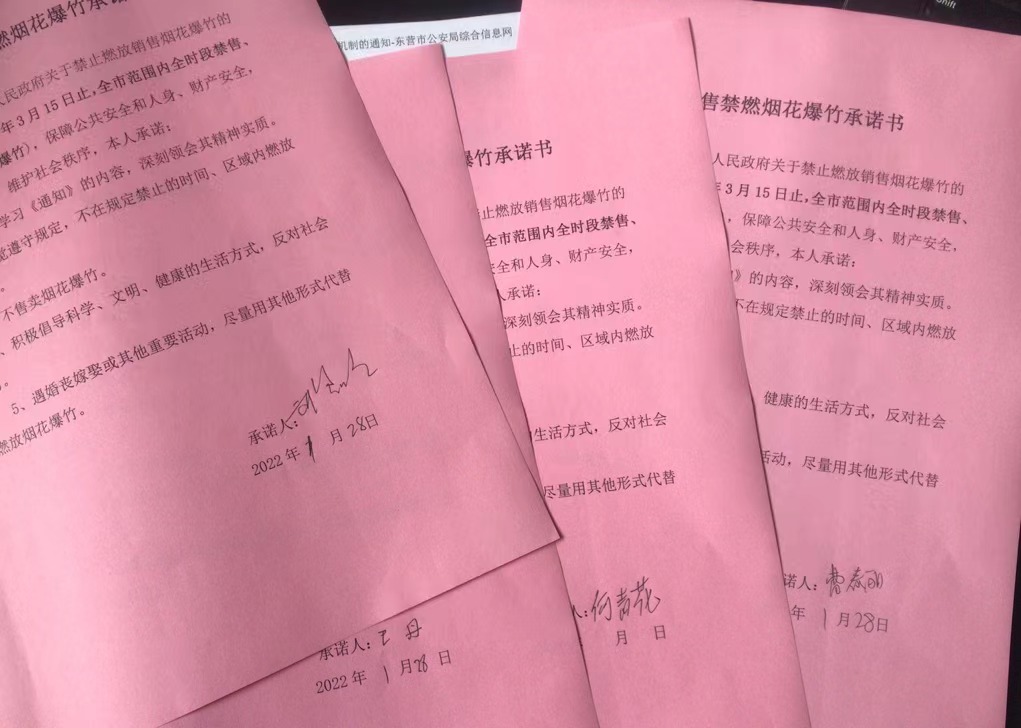 Shift
机制的通知-东营市公安局综合信息网
燃烟花爆竹承诺
人民政府关于禁止燃放销售烟花爆竹的
年3月15日止,全市范围内全时段禁售、
爆竹),保障公共安全和人身、财产安全,
维护社会秩序,本人承诺:
学习《通知》的内容,深刻领会其精神实质。
觉遵守规定,不在规定禁止的时间、区域内燃放
。
不售卖烟花爆竹。
、积极倡导科学、文明、健康的生活方式,反对社会
。
5、遇婚丧嫁娶或其他重要活动,尽量用其他形式代替
燃放烟花爆竹。
承诺人:
2022年1月28日
承诺人:王丹
2022年1月28日
爆竹承诺书
止燃放销售烟花爆竹的
全市范围内全时段禁售、
安全和人身、财产安全,
人承诺:
深刻领会其精神实质。
止的时间、区域内燃放
生活方式,反对社会
尽量用其他形式代替
人:何青花
月 日
售禁燃烟花爆竹承诺书
人民政府关于禁止燃放销售烟花爆竹的
年3月15日止,全市范围内全时段禁售、
,保障公共安全和人身、财产安全,
会秩序,本人承诺:
知》的内容,深刻领会其精神实质。
不在规定禁止的时间、区域内燃放
健康的生活方式,反对社会
活动,尽量用其他形式代替
诺人:曹春丽
年1月28日